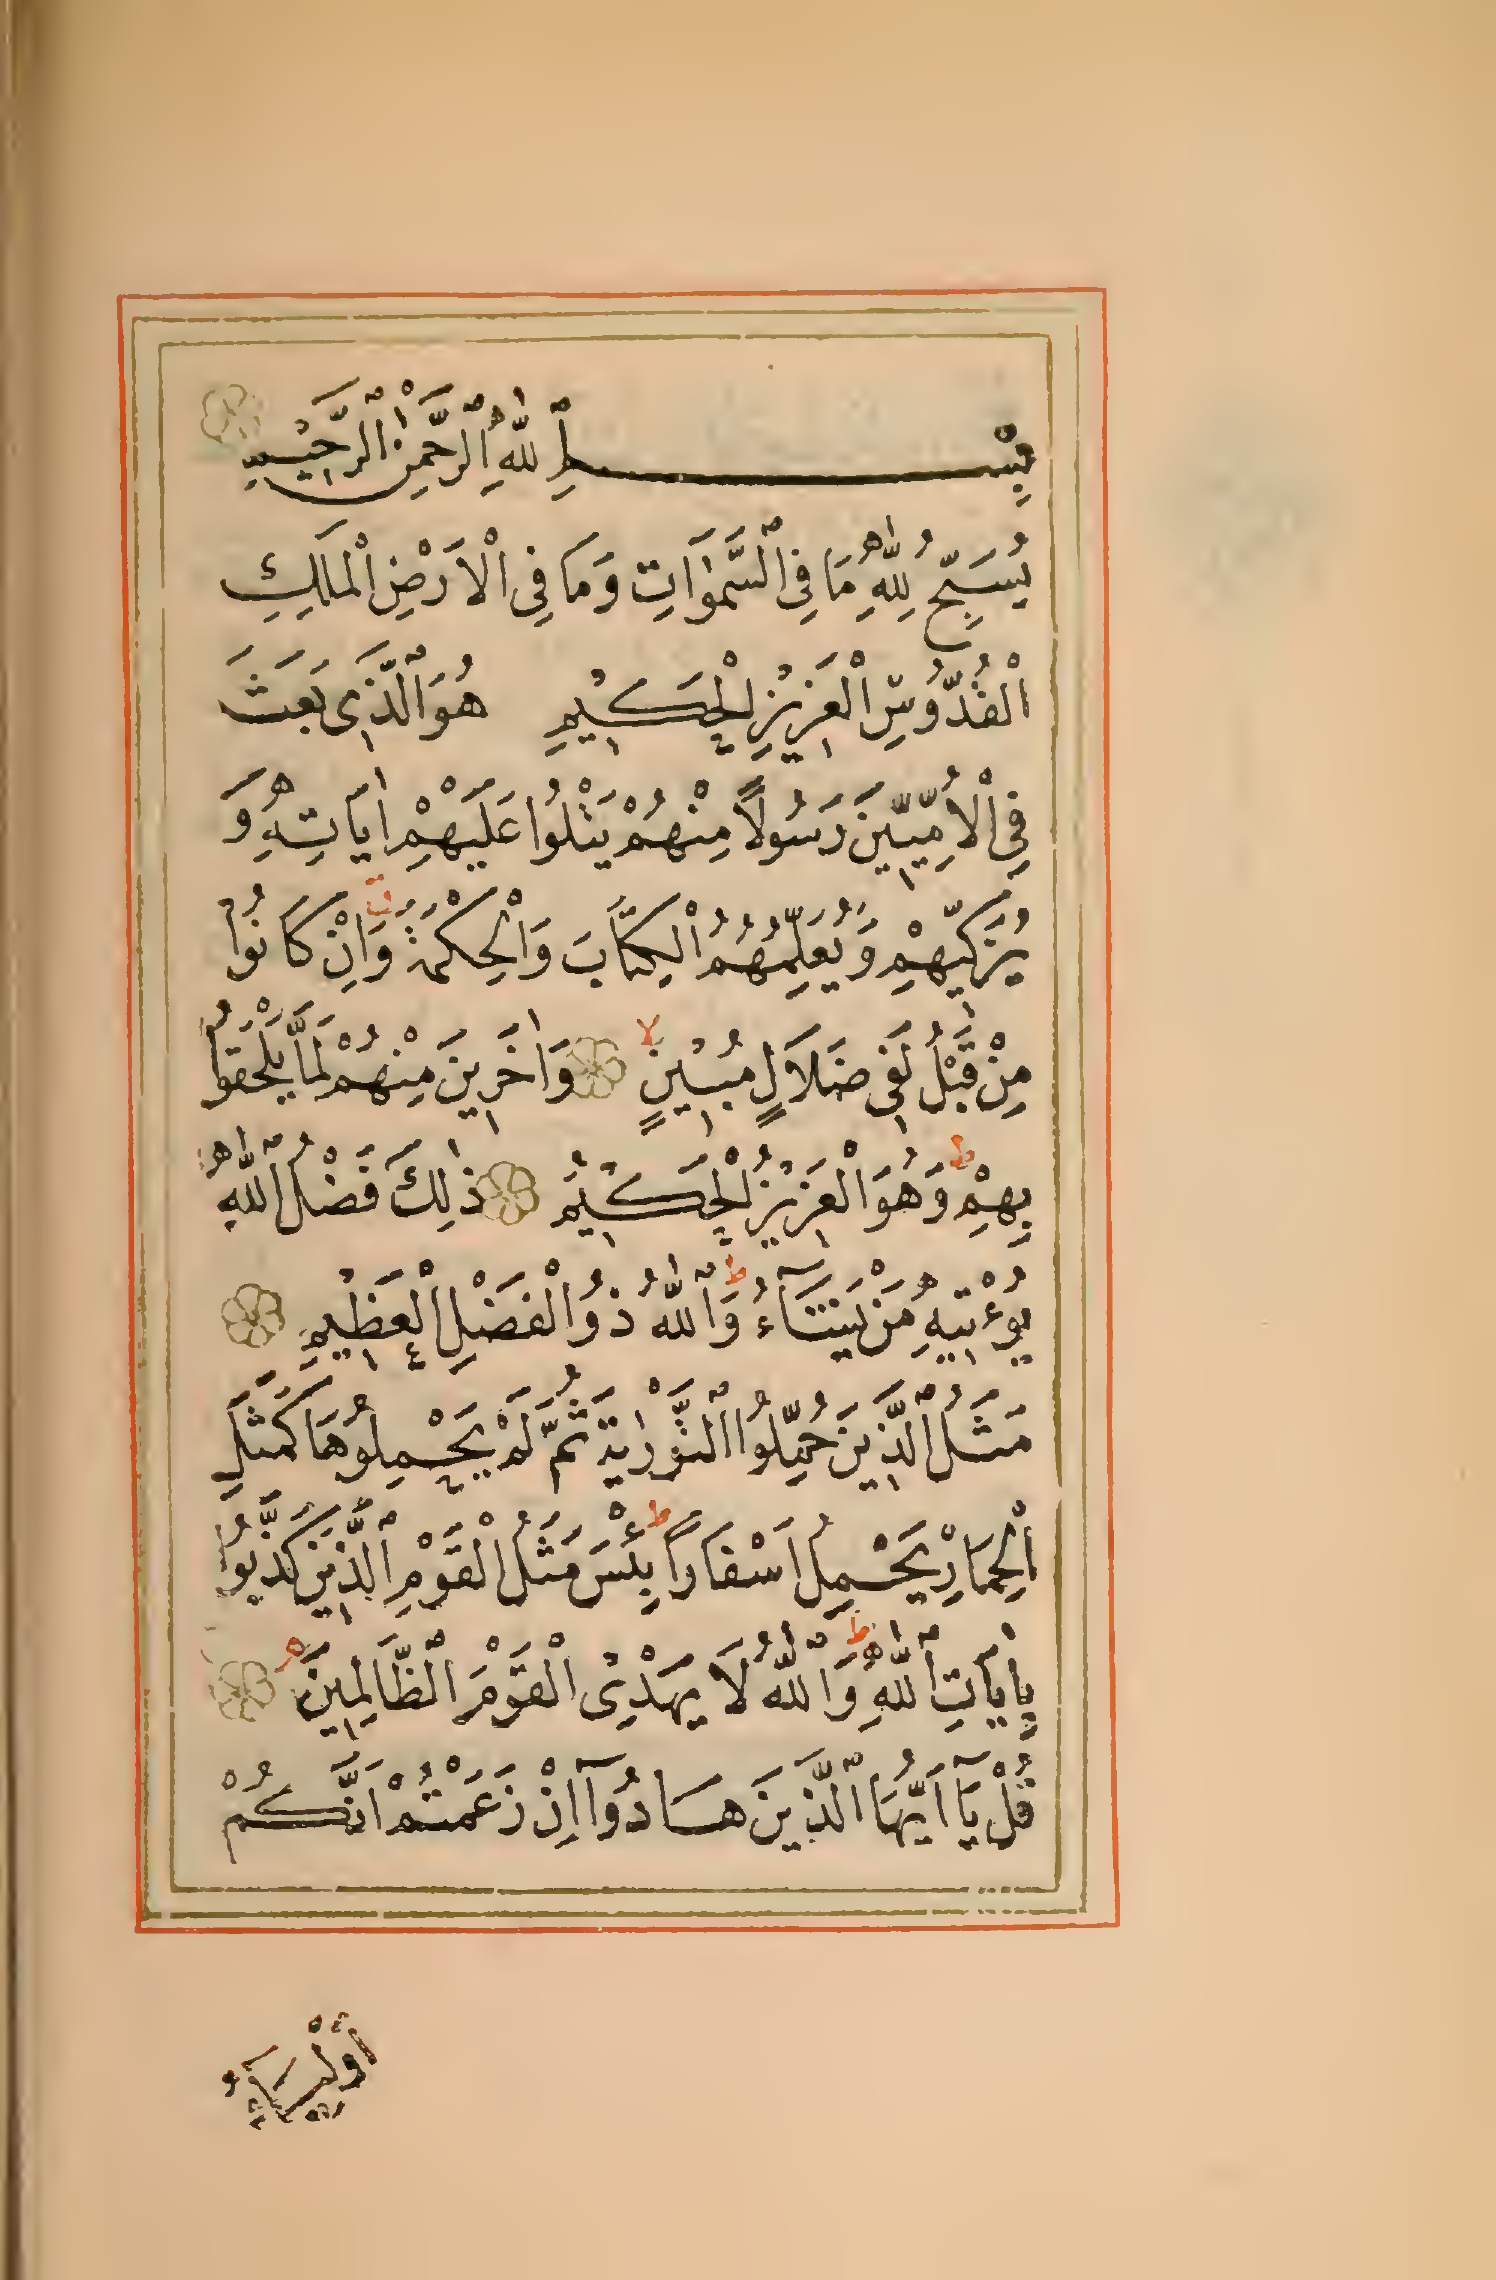 بِسْمِ اللهِ الرَّحْمٰنِ الرَّحِيمِ
يُسَبِّحُ لِلّٰهِ مَا فِى السَّمٰوَاتِ وَمَا فِى الْاَرْضِ الْمَلِكِ
الْقُدُّوسِ الْعَزِيزِ الْحَكِيمِ هُوَ الَّذِى بَعَثَ
فِى الْاُمِّيّٖنَ رَسُولاً مِنْهُمْ يَتْلُوا عَلَيْهِمْ اٰيَاتِهِ وَ
يُزَكِّيهِمْ وَيُعَلِّمُهُمُ الْكِتَابَ وَالْحِكْمَةَ ق وَاِنْ كَانُوا
مِنْ قَبْلُ لَفِى ضَلَالٍ مُبِينٍ لا وَاٰخَرِينَ مِنْهُمْ لَمَّا يَلْحَقُوا
بِهِمْ ط وَهُوَ الْعَزِيزُ الْحَكِيمُ ذٰلِكَ فَضْلُ اللّٰهِ
يُؤْتِيهِ مَنْ يَشَآءُ ط وَاللّٰهُ ذُو الْفَضْلِ الْعَظِيمِ
مَثَلُ الَّذِينَ حُمِّلُوا التَّوْرٰيةَ ثُمَّ لَمْ يَحْمِلُوهَا كَمَثَلِ
الْحِمَارِ يَحْمِلُ اَسْفَارًا ط بِئْسَ مَثَلُ الْقَوْمِ الَّذِينَ كَذَّبُوا
بِاٰيَاتِ اللّٰهِ ط وَاللّٰهُ لَا يَهْدِى الْقَوْمَ الظَّالِمِينَ
قُلْ يَآ اَيُّهَا الَّذِينَ هَادُوآ اِنْ زَعَمْتُمْ اَنَّكُمْ
أَوْلِيَاءُ